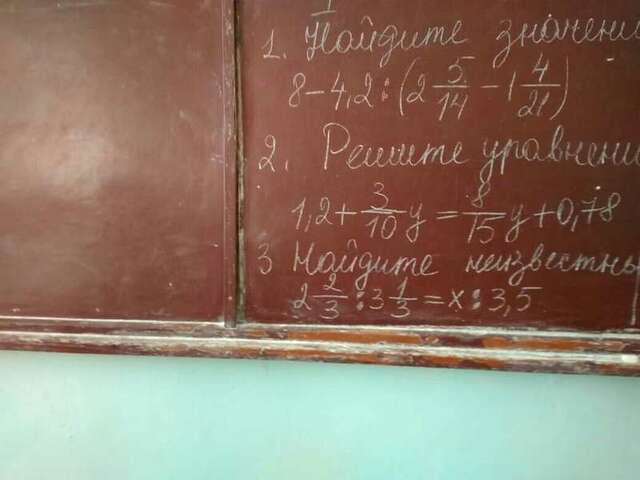 1
1. Найдите значени
8-4,2:(2 5/14 - 1 4/21)
2. Решите уравнени
1,2+3/10 y = 8/15 y+0,78
3 Найдите неизвестны
2 2/3 : 3 1/3 = x : 3,5